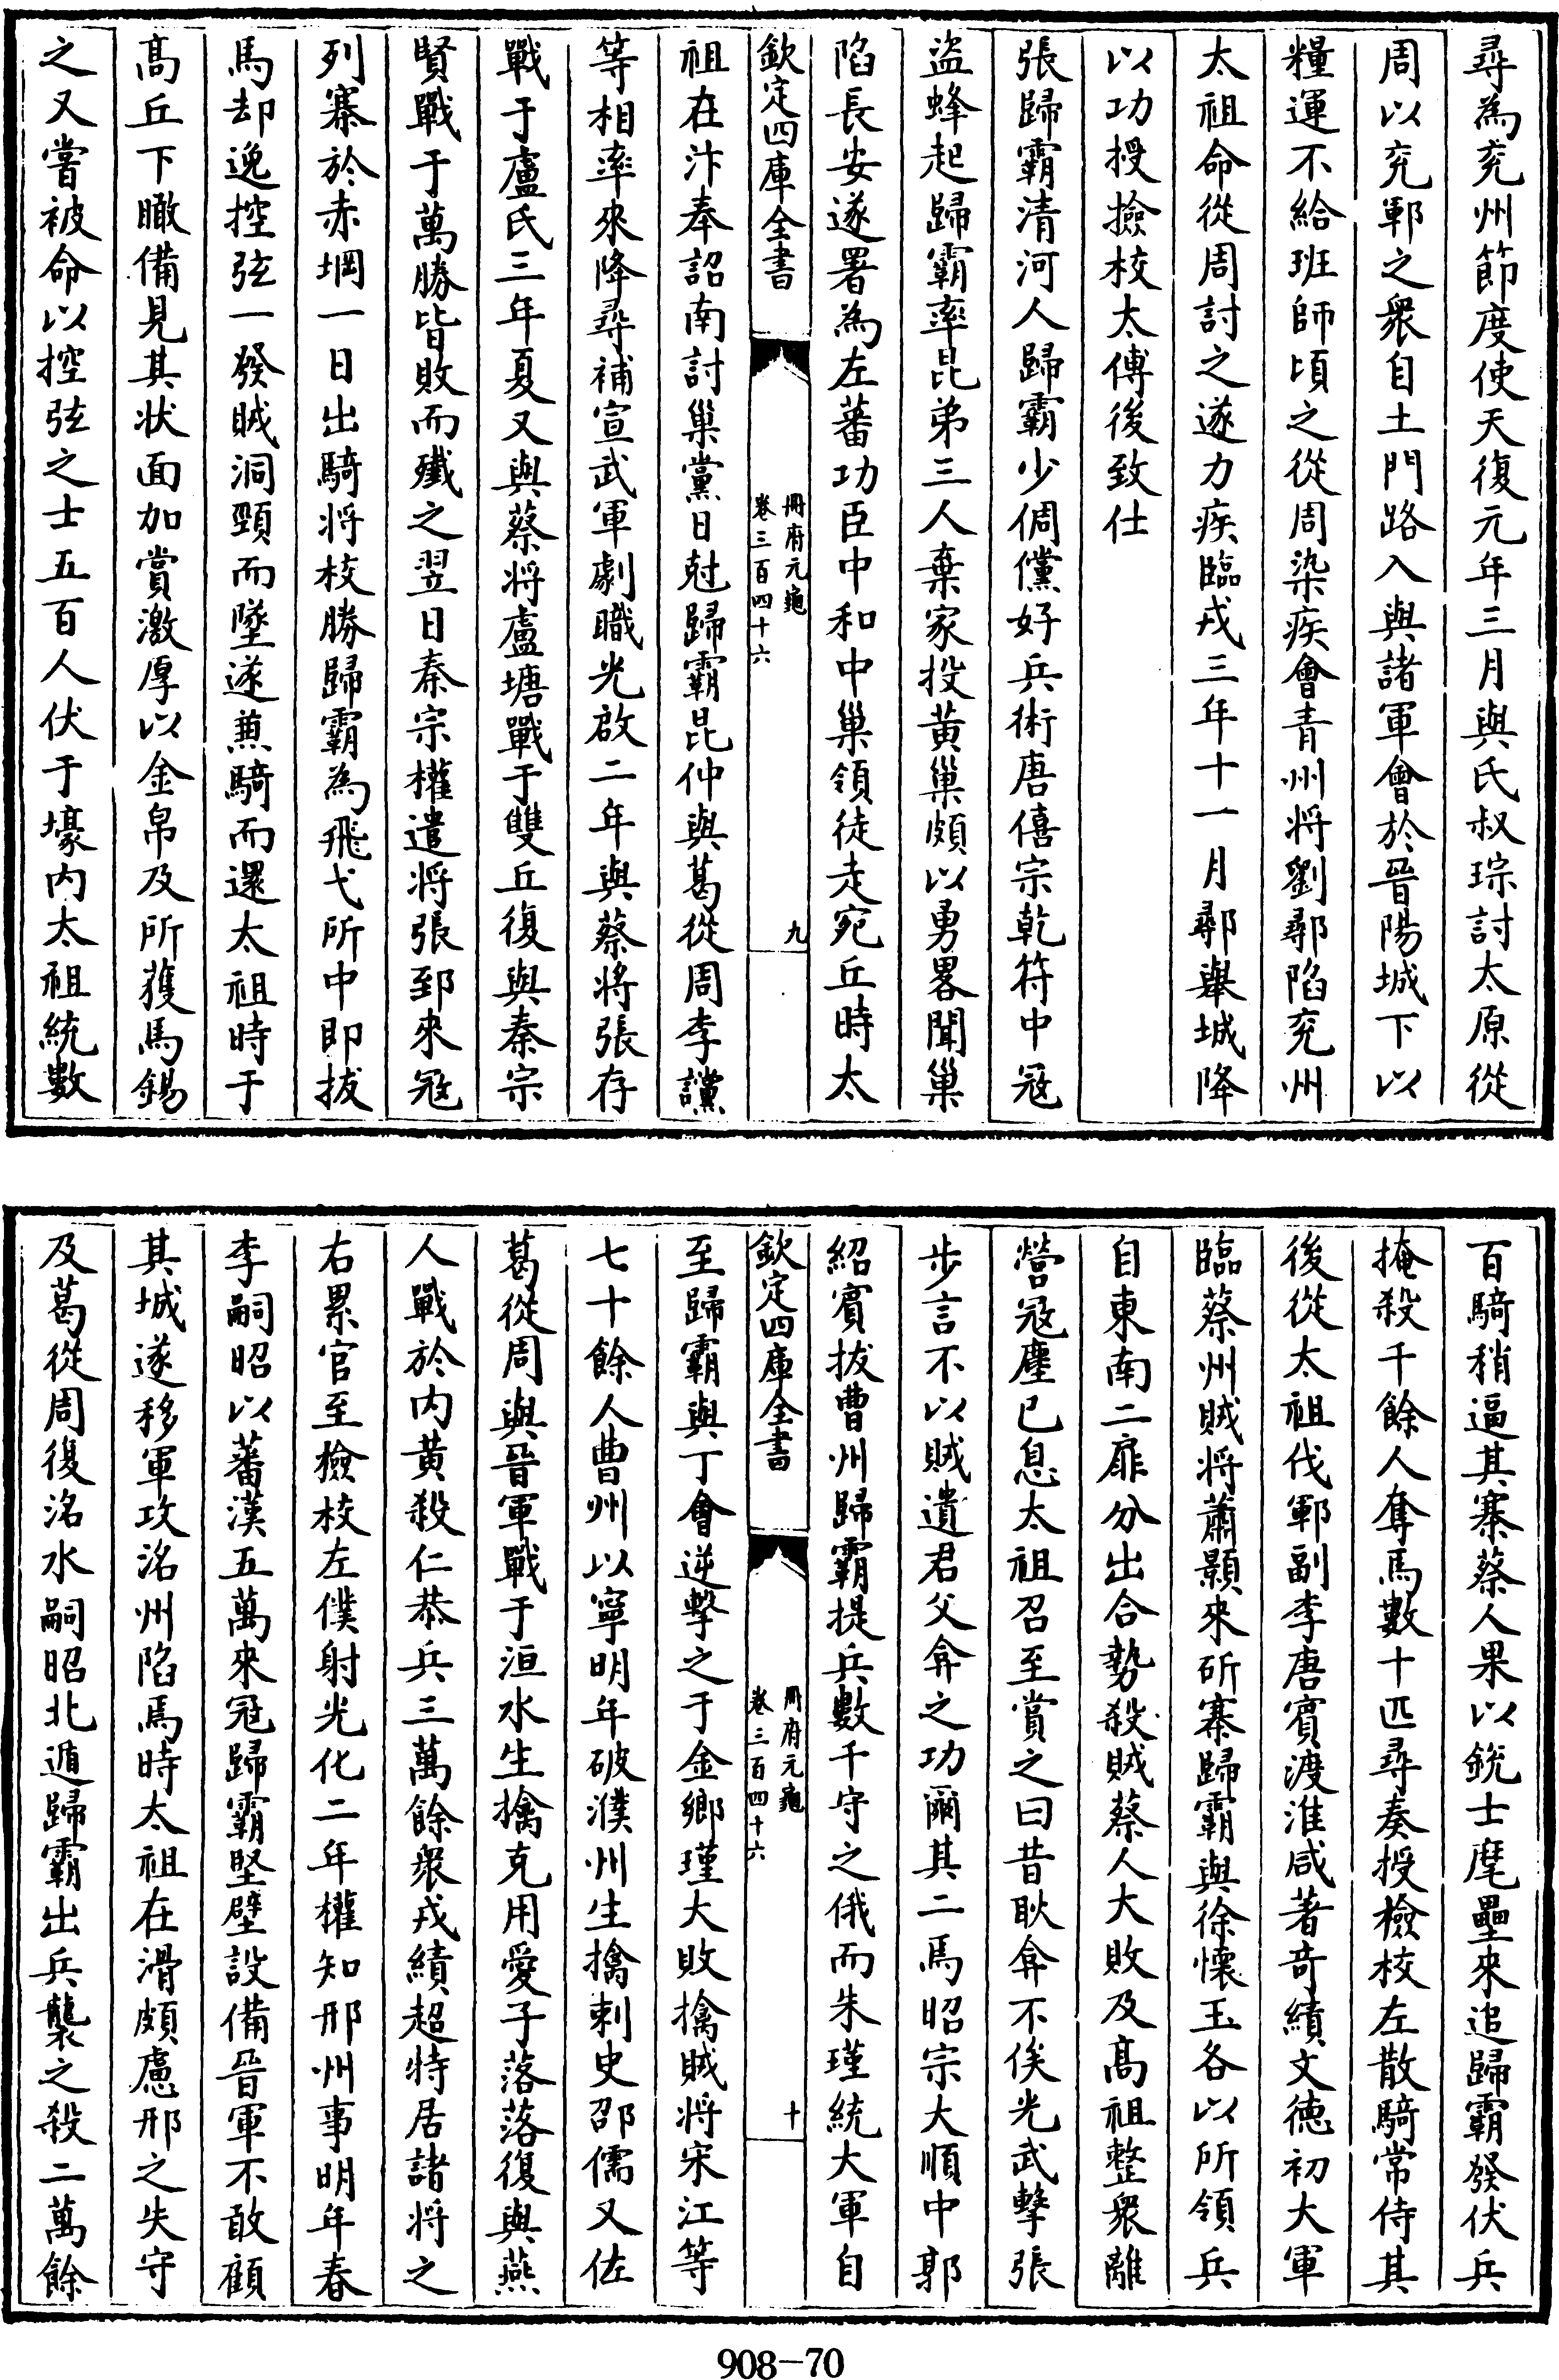 尋為兖州節度使天復元年三月與氏叔琮討太原從
周以兖鄆之衆自土門路入與諸軍會於晉陽城下以
糧運不給班師頃之從周染疾會青州将劉鄩陷兖州
太祖命從周討之遂力疾臨戎三年十一月鄩舉城降
以功授撿校太傅後致仕
張歸霸清河人歸霸少倜儻好兵術唐僖宗乾符中冦
盜蜂起歸霸率昆弟三人棄家投黄巢頗以勇畧聞巢
陷長安遂署為左蕃功臣中和中巢領徒走宛丘時太
欽定四庫全書
冊府元龜
卷三百四十六
九
祖在汴奉詔南討巢黨日尅歸霸昆仲與葛從周李讜
等相率來降尋補宣武軍劇職光啟二年與蔡将張存
戰于盧氏三年夏又與蔡将盧塘戰于雙丘復與秦宗
賢戰于萬勝皆敗而殲之翌日秦宗權遣将張郅來冦
列寨於赤堈一日出騎将校勝歸霸為飛弋所中即拔
馬却逸控弦一發賊洞頸而墜遂兼騎而還太祖時于
髙丘下瞰備見其状面加賞激厚以金帛及所獲馬錫
之又嘗被命以控弦之士五百人伏于壕内太祖統數
百騎稍逼其寨蔡人果以銳士麾壘來追歸霸發伏兵
掩殺千餘人奪馬數十匹尋奏授檢校左散騎常侍其
後從太祖伐鄆副李唐賓渡淮咸著竒績文德初大軍
臨蔡州賊将蕭顥來斫寨歸霸與徐懷玉各以所領兵
自東南二扉分出合勢殺賊蔡人大敗及髙祖整衆離
營冦塵已息太祖召至賞之曰昔耿弇不俟光武擊張
步言不以賊遺君父弇之功爾其二馬昭宗大順中郭
紹賓拔曹州歸霸提兵數千守之俄而朱瑾統大軍自
欽定四庫全書
冊府元龜
卷三百四十六
十
至歸霸與丁會逆擊之于金鄉瑾大敗擒賊将宋江等
七十餘人曹州以寧明年破濮州生擒刺史邵儒又佐
葛從周與晉軍戰于洹水生擒克用愛子落落復與燕
人戰於内黄殺仁恭兵三萬餘衆戎績超特居諸将之
右累官至檢校左僕射光化二年權知邢州事明年春
李嗣昭以蕃漢五萬來冦歸霸堅壁設備晉軍不敢顧
其城遂移軍攻洺州陷焉時太祖在滑頗慮邢之失守
及葛從周復洺水嗣昭北遁歸霸出兵襲之殺二萬餘
908-70